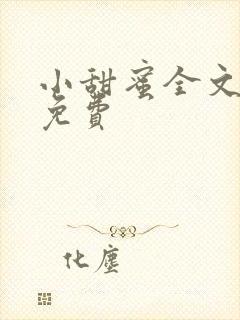 小甜蜜全文
免費
化塵